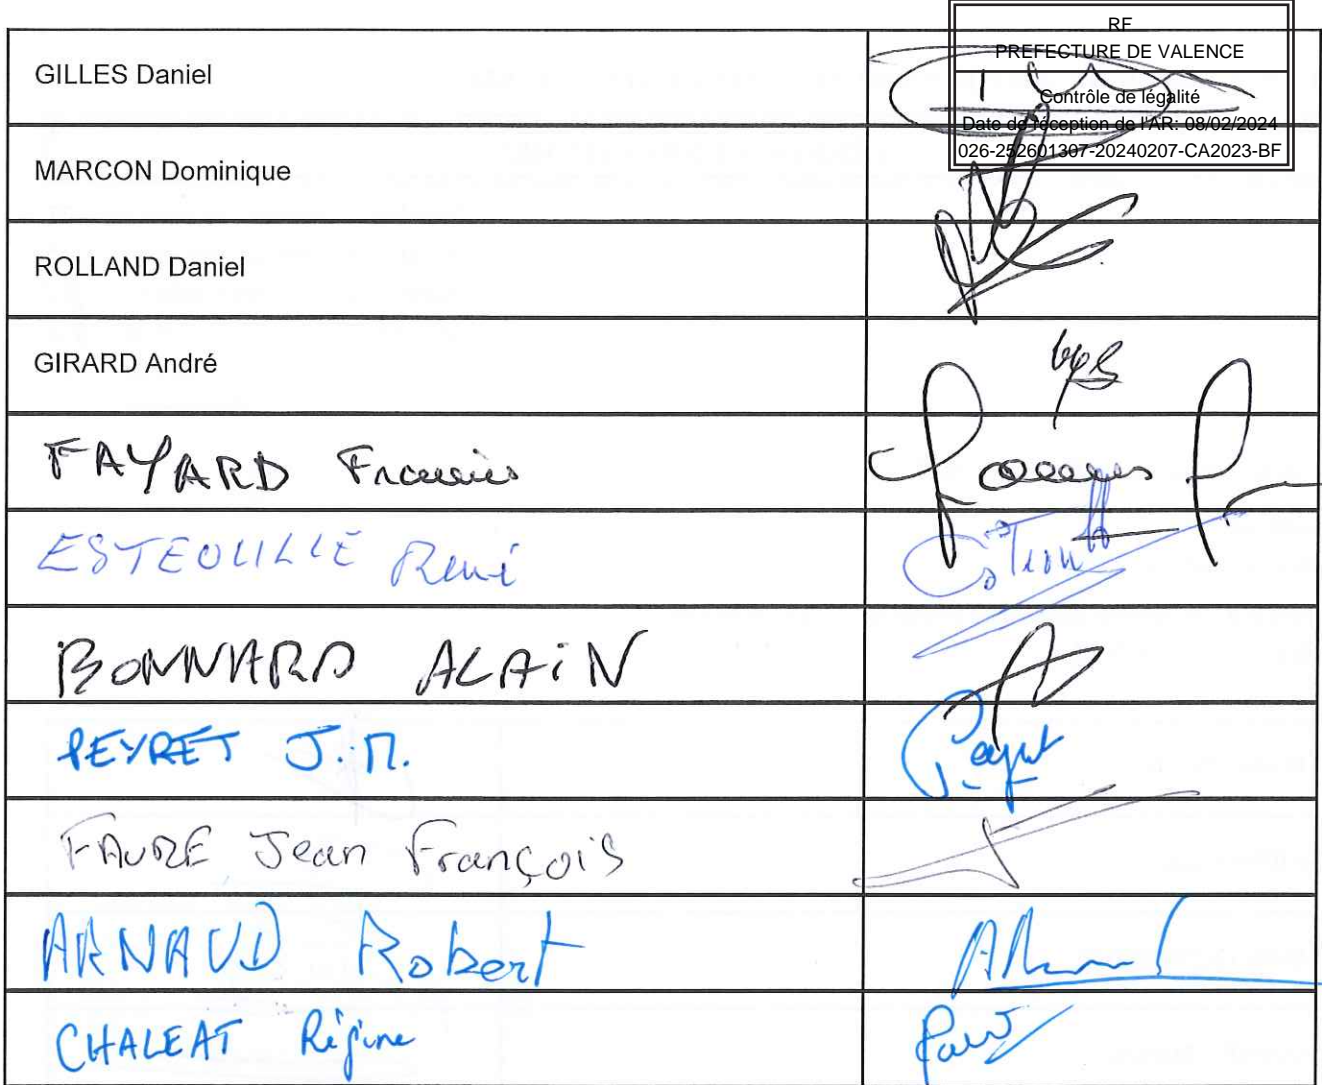 RF
PREFECTURE DE VALENCE
Contrôle de légalité
Date de réception de l'AR: 08/02/2024
026-252601307-20240207-CA2023-BF
GILLES Daniel
MARCON Dominique
ROLLAND Daniel
GIRARD André
FAYARD Francis
ESTEOULLE René
BONNARD ALAiN
PEYRET J.M.
FAURE Jean François
ARNAUD Robert
CHALEAT Régine